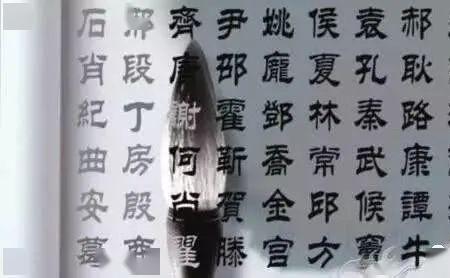 郝耿路康譚牛
袁孔秦武候竇
侯夏林常邱方
姚龐鄧喬金宮
尹邵霍靳賀滕
齊唐謝何尚翟
段丁房殷
石肖紀曲安葛